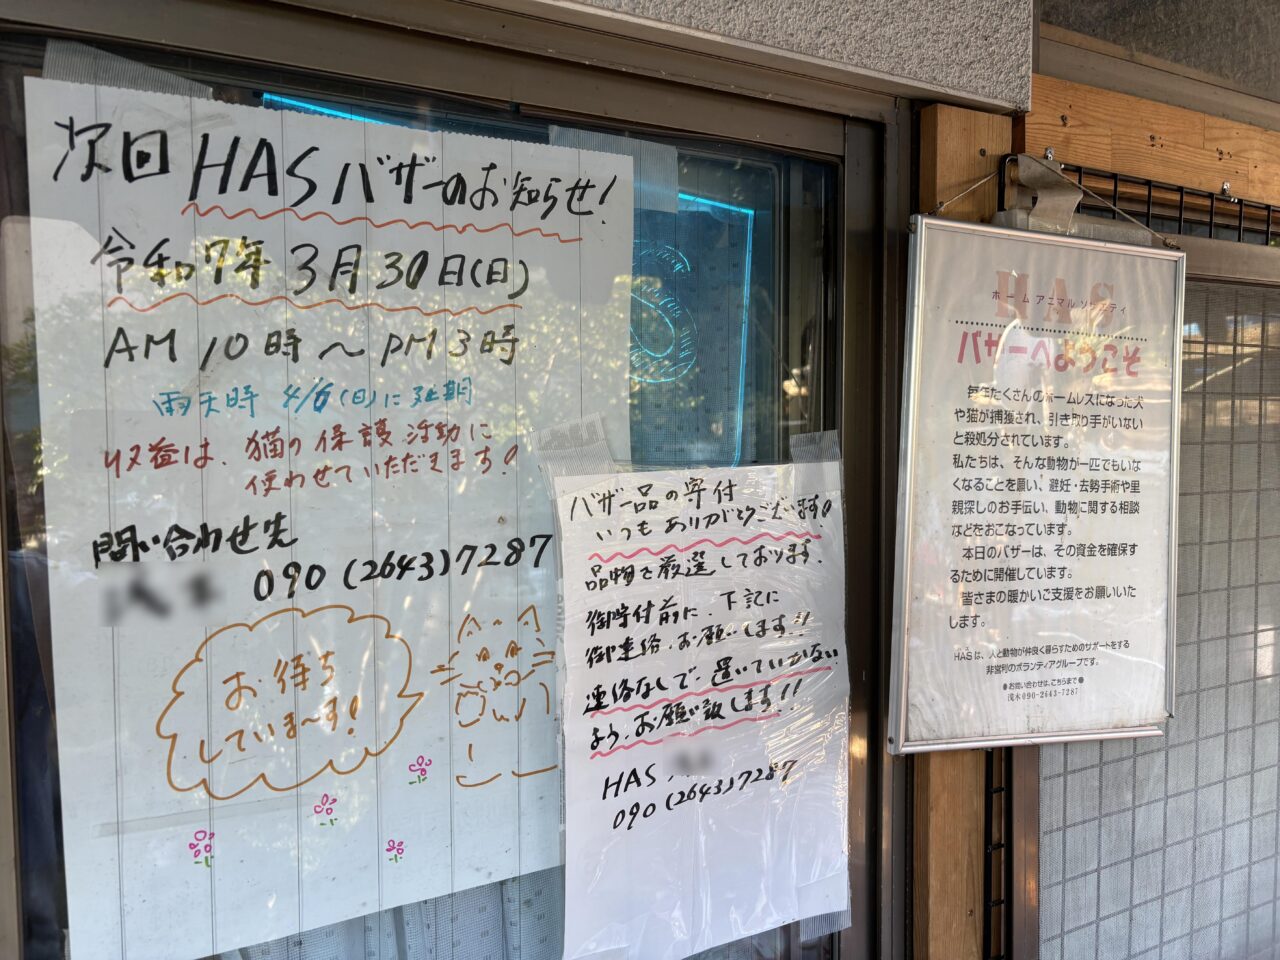 次回 HASバザーのお知らせ!
令和7年 3月30日(日)
AM 10時～PM 3時
雨天時 4/6(日)に延期
収益は、猫の保護活動に
使わせていただきます!
問い合わせ先
090 (2643) 7287
お待ち
していま～す!
バザー品の寄付
いつもありがとうございます!
品物を厳選しております.
御寄付前に、下記に
御連絡、お願いします!!
連絡なしで、置いていかない
よう、お願い致します!!
HAS
090 (2643) 7287
HAS
ホームアニマルソサエティ
バザーへようこそ
毎年たくさんのホームレスになった犬
や猫が捕獲され、引き取り手がいない
と殺処分されています。
私たちは、そんな動物が一匹でもいな
くなることを願い、避妊・去勢手術や里
親探しのお手伝い、動物に関する相談
などをおこなっています。
本日のバザーは、その資金を確保す
るために開催しています。
皆さまの暖かいご支援をお願いいた
します。
HASは、人と動物が仲良く暮らすためのサポートをする
非営利のボランティアグループです。
●お問い合わせは、こちらまで●
浅木090-2643-7287